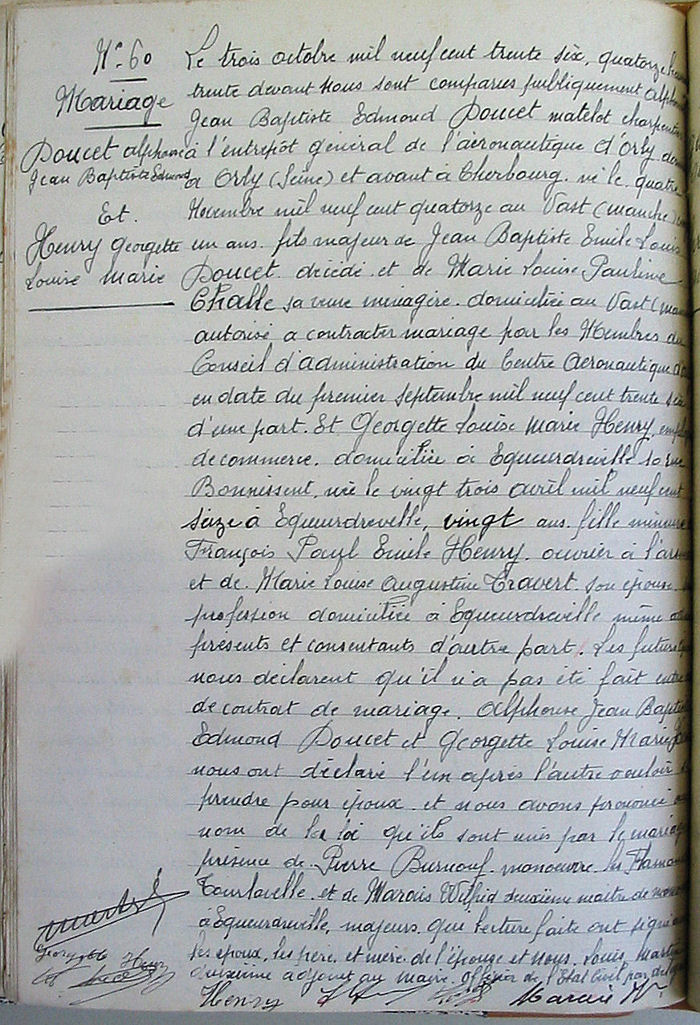 N° 60
Mariage
Doucet Alphonse
Jean Baptiste Edmond
Et.
Henry Georgette
Louise Marie
Le trois octobre mil neuf cent trente six, quatorze heu
trente devant nous sont comparus publiquement Alpho
Jean Baptiste Edmond Doucet matelot charpentier
à l'entrepôt général de l'aéronautique d'Orly, dom
à Orly (Seine) et avant à Cherbourg. né le quatre
Novembre mil neuf cent quatorze au Vast (Manche)
un ans. fils majeur de Jean Baptiste Emile Louis
Doucet. décédé. et de Marie Louise Pauline
Challe sa veuve ménagère. domiciliée au Vast (Man
autorisé a contracter mariage par les Membres du
Conseil d'administration du Centre Aéronautique d'O
en date du premier septembre mil neuf cent trente six
d'une part. Et Georgette Louise Marie Henry, empl
de commerce. domiciliée à Equeurdreville rue
Bonnissent, née le vingt trois avril mil neuf cent
seize à Equeurdreville, vingt ans. fille mineure
François Paul Emile Henry. ouvrier à l'arse
et de Marie Louise Augustine Travert son épouse.
profession domiciliée à Equeurdreville même
présents et consentants d'autre part. Les futurs
nous déclarent qu'il n'a pas été fait entre
de contrat de mariage. Alphonse Jean Baptis
Edmond Doucet et Georgette Louise Marie
nous ont déclaré l'un après l'autre vouloir
prendre pour époux. et nous avons prononcé
nom de la loi qu'ils sont unis par le mariage
présence de Pierre Burnouf manœuvre les Flaman
Tourlaville et de Marais Wilfrid deuxième maître de
à Equeurdreville, majeurs, qui lecture faite ont signé
les époux, les père et mère de l'épouse et nous, Louis, Marti
deuxième adjoint au maire. Officier de l'Etat Civil par dél
Georgette Henry
Henry